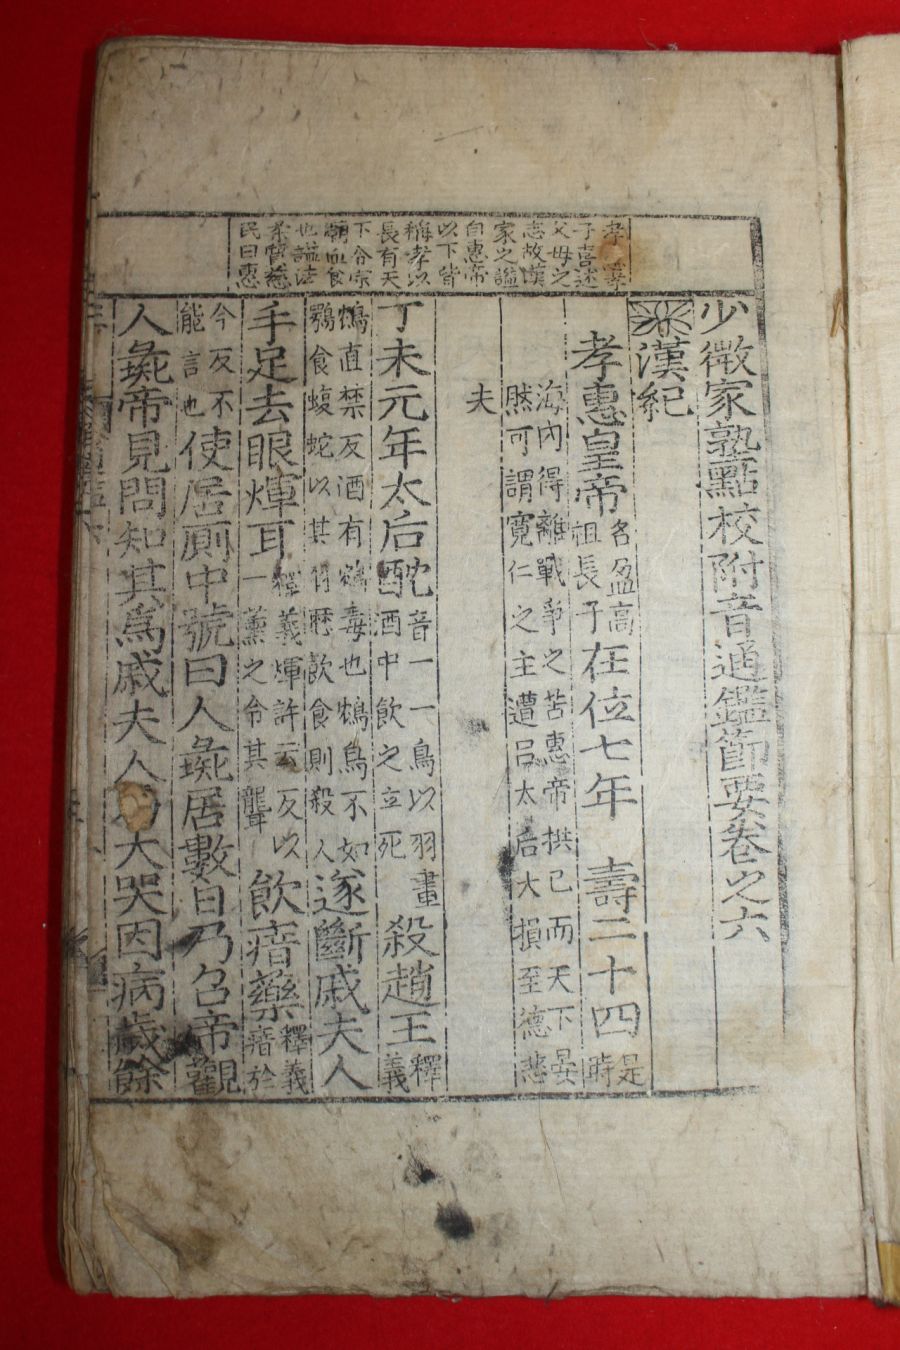 孝惠孝
子善述
父母之
志故漢
家之謚
自惠帝
以下皆
稱孝以
長有天
下令宗
廟血食
也謚法
柔質慈
民曰惠
少微家塾點校附音通鑑節要卷之六
漢紀
孝惠皇帝
名盈高
祖長子
在位七年 壽二十四
是
時
海內得離戰爭之苦惠帝拱己而天下晏
然可謂寬仁之主遭呂太后大損至德悲
夫
丁未元年太后酖
音一一鳥以羽畫
酒中飲之立死
殺趙王
釋
義
鴆直禁反酒有鴆毒也鴆鳥不如
鶚食蝮蛇以其羽歷飲食則殺人
遂斷戚夫人
手足去眼煇耳
釋義煇許云反以
一薰之令其聾
飲瘖藥
釋義
瘖於
今反不
能言也
使居廁中號曰人彘居數日乃召帝觀
人彘帝見問知其爲戚夫人乃大哭因病歲餘